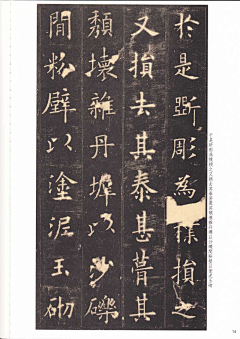 於是斲彫為樸損之
又損去其泰甚葺其
頹壞雜丹墀以沙礫
閒粉壁以塗泥玉砌